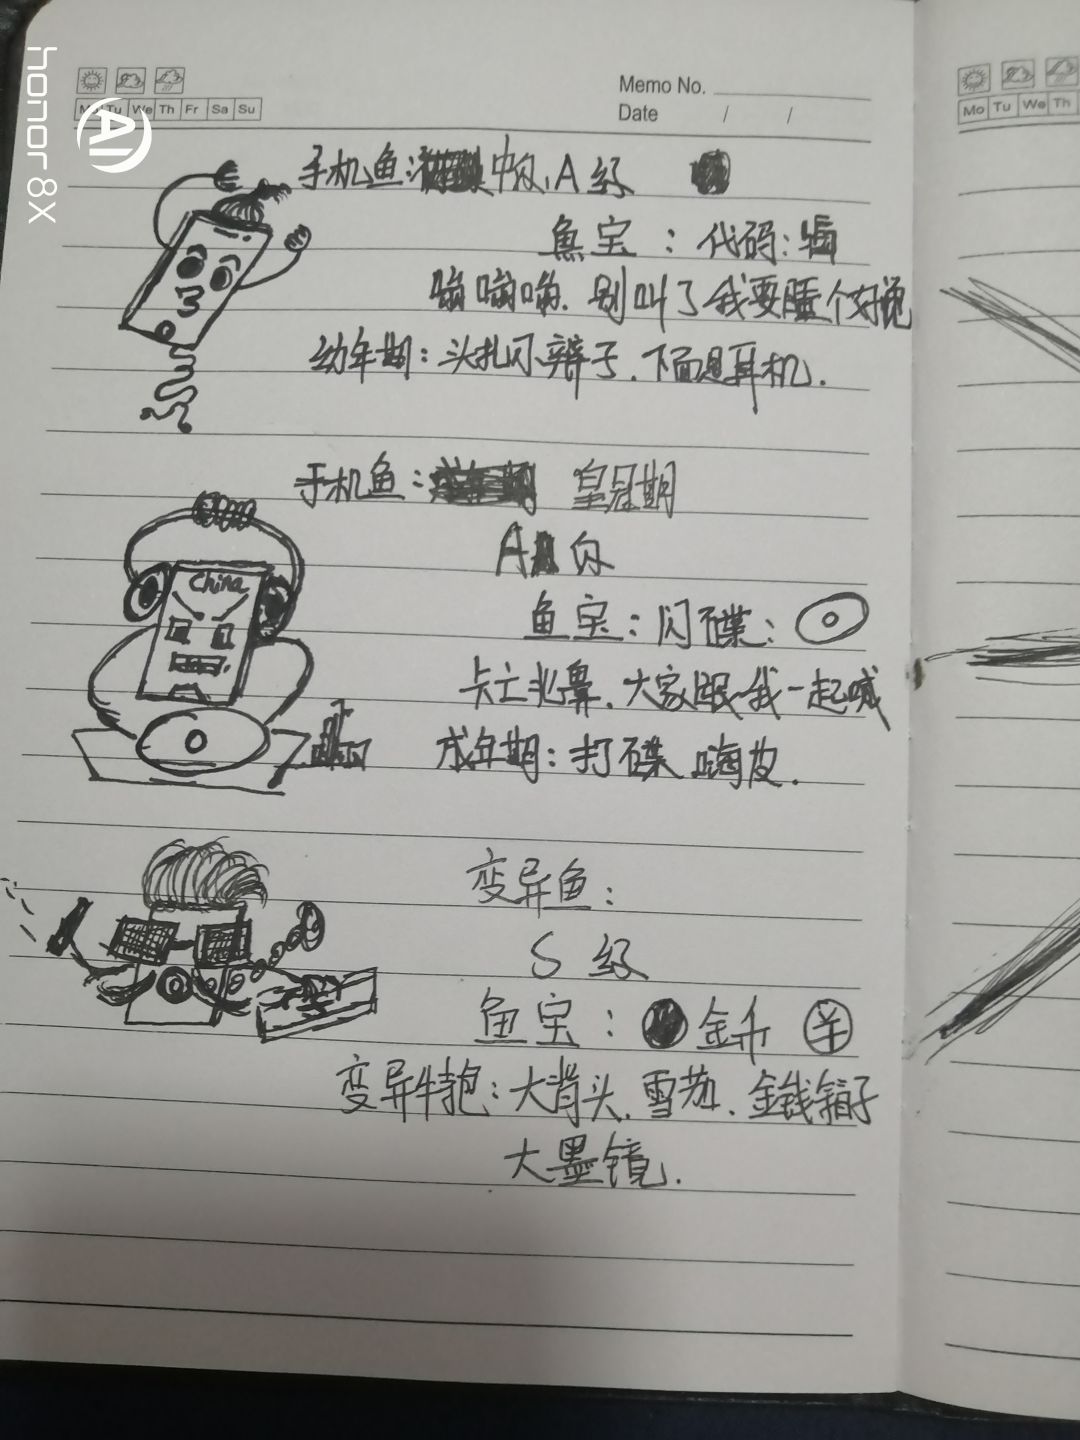 honor 8X
AI
Memo No.
Mo Tu We Th Fr Sa Su
Date / /
Mo Tu We Th
手机鱼: A级
鱼宝 : 代码:
嗡嗡嗡. 别叫了我要睡个好觉
幼年期: 头扎小辫子. 下面是耳机.
手机鱼: 皇冠期
A
China
鱼宝: 闪碟:
大家跟我一起喊
成年期: 打碟 嗨皮.
变异鱼:
S 级
鱼宝: 金币 ¥
变异: 大背头. 雪茄. 金钱箱子
大墨镜.